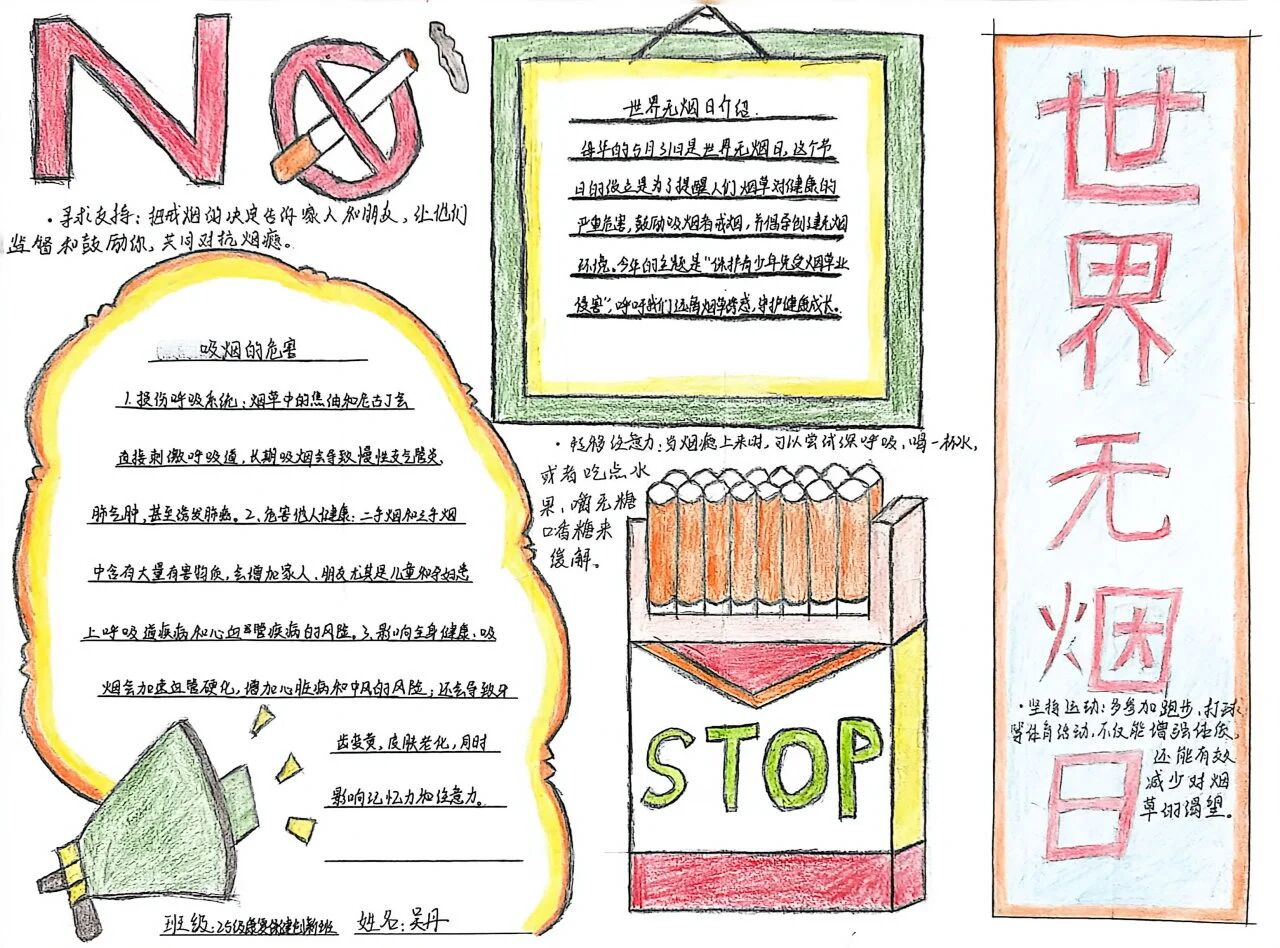 NO
·寻求支持：把戒烟的决定告诉家人和朋友，让他们
监督和鼓励你，共同对抗烟瘾。
世界无烟日介绍.
每年的5月31日是世界无烟日，这个节
日的设立是为了提醒人们烟草对健康的
严重危害，鼓励吸烟者戒烟，并倡导创建无烟
环境。今年的主题是“保护青少年免受烟草业
侵害”，呼吁我们远离烟草诱惑，守护健康成长。
吸烟的危害
1.损伤呼吸系统：烟草中的焦油和尼古丁会
直接刺激呼吸道，长期吸烟会导致慢性支气管炎、
肺气肿，甚至诱发肺癌。2、危害他人健康：二手烟和三手烟
中含有大量有害物质，会增加家人、朋友尤其是儿童和孕妇患
上呼吸道疾病和心血管疾病的风险。3.影响全身健康：吸
烟会加速血管硬化，增加心脏病和中风的风险；还会导致牙
齿变黄，皮肤老化，同时
影响记忆力和注意力。
·转移注意力：当烟瘾上来时，可以尝试深呼吸、喝一杯水，
或者吃点水
果，嚼无糖
口香糖来
缓解。
STOP
世界无烟日
·坚持运动：多参加跑步、打球
等体育活动，不仅能增强体质，
还能有效
减少对烟
草的渴望。
班级：25级康复保健创新班 姓名：吴丹